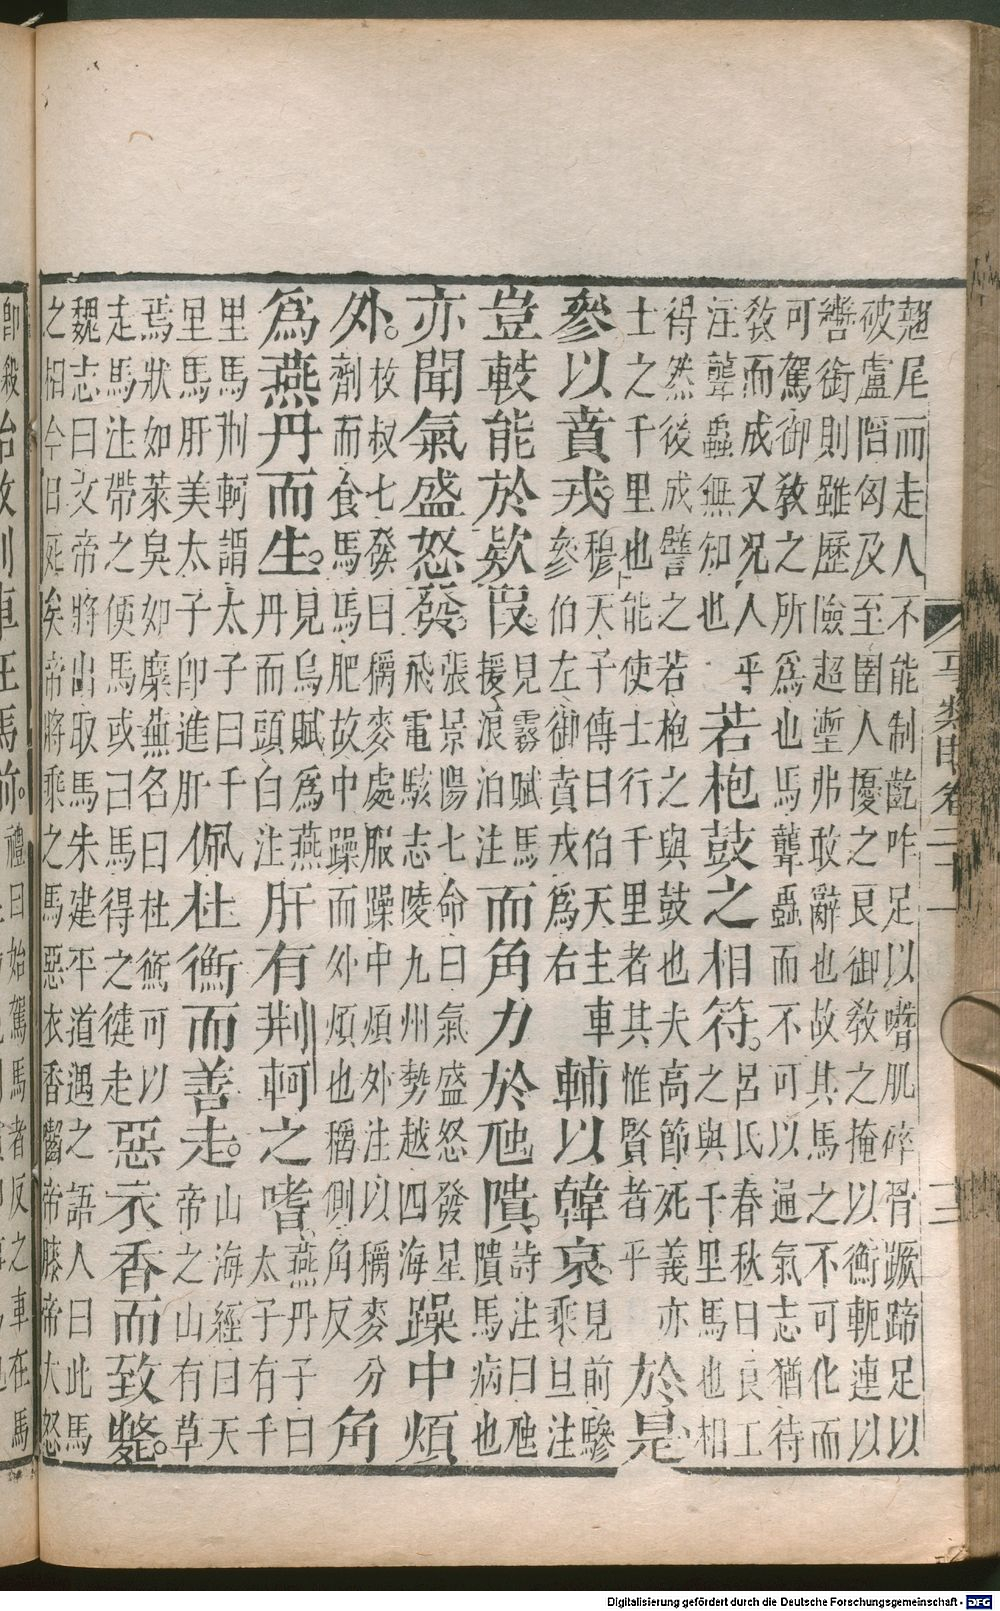 翹尾而走人不能制齕咋足以噆肌碎骨蹶蹄足以
破盧陷匈及至圉人擾之良御教之掩以衡軛連以
轡銜則雖歷險超塹弗敢辭也故其馬之不可化而
可駕御教之所爲也馬聾蟲而不可以通氣志猶待
教而成又况人乎
注聾蟲無知也
若枹鼓之相符。
呂氏春秋曰良工
之與千里馬也相
得然後成譬之若枹之與鼓也夫高節死義亦
士之千里也能使士行千里者其惟賢者乎
於是
參以賁戎。
穆天子傳曰伯天主車
參伯左御賁戎爲右
輔以韓哀。
見前驂
乘旦注
豈較能於欵叚。
見霧賦馬
援浪泊注
而角力於虺隤。
詩注曰虺
隤馬病也
亦聞氣盛怒發。
張景陽七命曰氣盛怒發星
飛電駭志陵九州勢越四海
躁中煩
外。
枚叔七發曰穱麥處服躁中煩外注以穱麥分
劑而食馬馬肥故中躁而外煩也穱側角反
角
爲燕丹而生。
見烏賦爲燕
丹而頭白注
肝有荆軻之嗜
燕丹子曰
太子有千
里馬荆軻謂太子曰千
里馬肝美太子卽進肝
佩杜衡而善走。
山海經曰天
帝之山有草
焉狀如葵臭如蘼蕪名曰杜衡可以
走馬注帶之使馬或曰馬得之徤走
惡衣香而致斃。
魏志曰文帝將出取馬朱建平道遇之語人曰此馬
之相今日死矣帝將乘之馬惡衣香齧帝膝帝大怒
卽殺始教則車在馬前。
禮曰始駕馬者反之車在馬
事類賦卷二十一
Digitalisierung gefördert durch die Deutsche Forschungsgemeinschaft - DFG